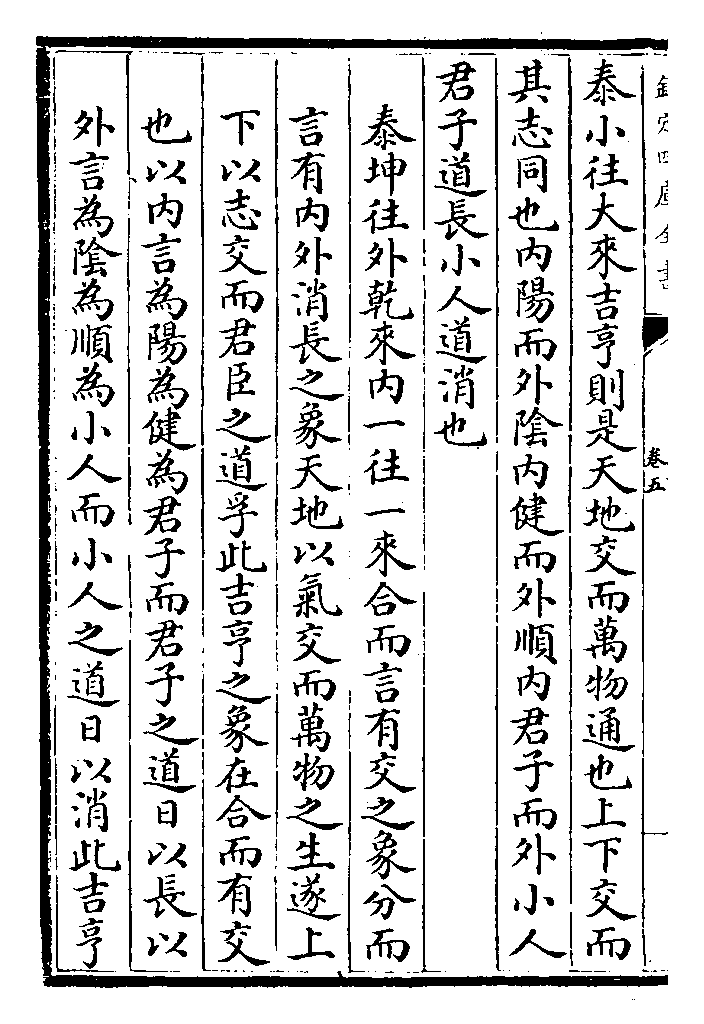 欽定四庫全書
卷五
泰小往大來吉亨則是天地交而萬物通也上下交而
其志同也内陽而外隂内健而外順内君子而外小人
君子道長小人道消也
泰坤往外乾來内一往一來合而言有交之象分而
言有内外消長之象天地以氣交而萬物之生遂上
下以志交而君臣之道孚此吉亨之象在合而有交
也以内言為陽為健為君子而君子之道日以長以
外言為隂為順為小人而小人之道日以消此吉亨